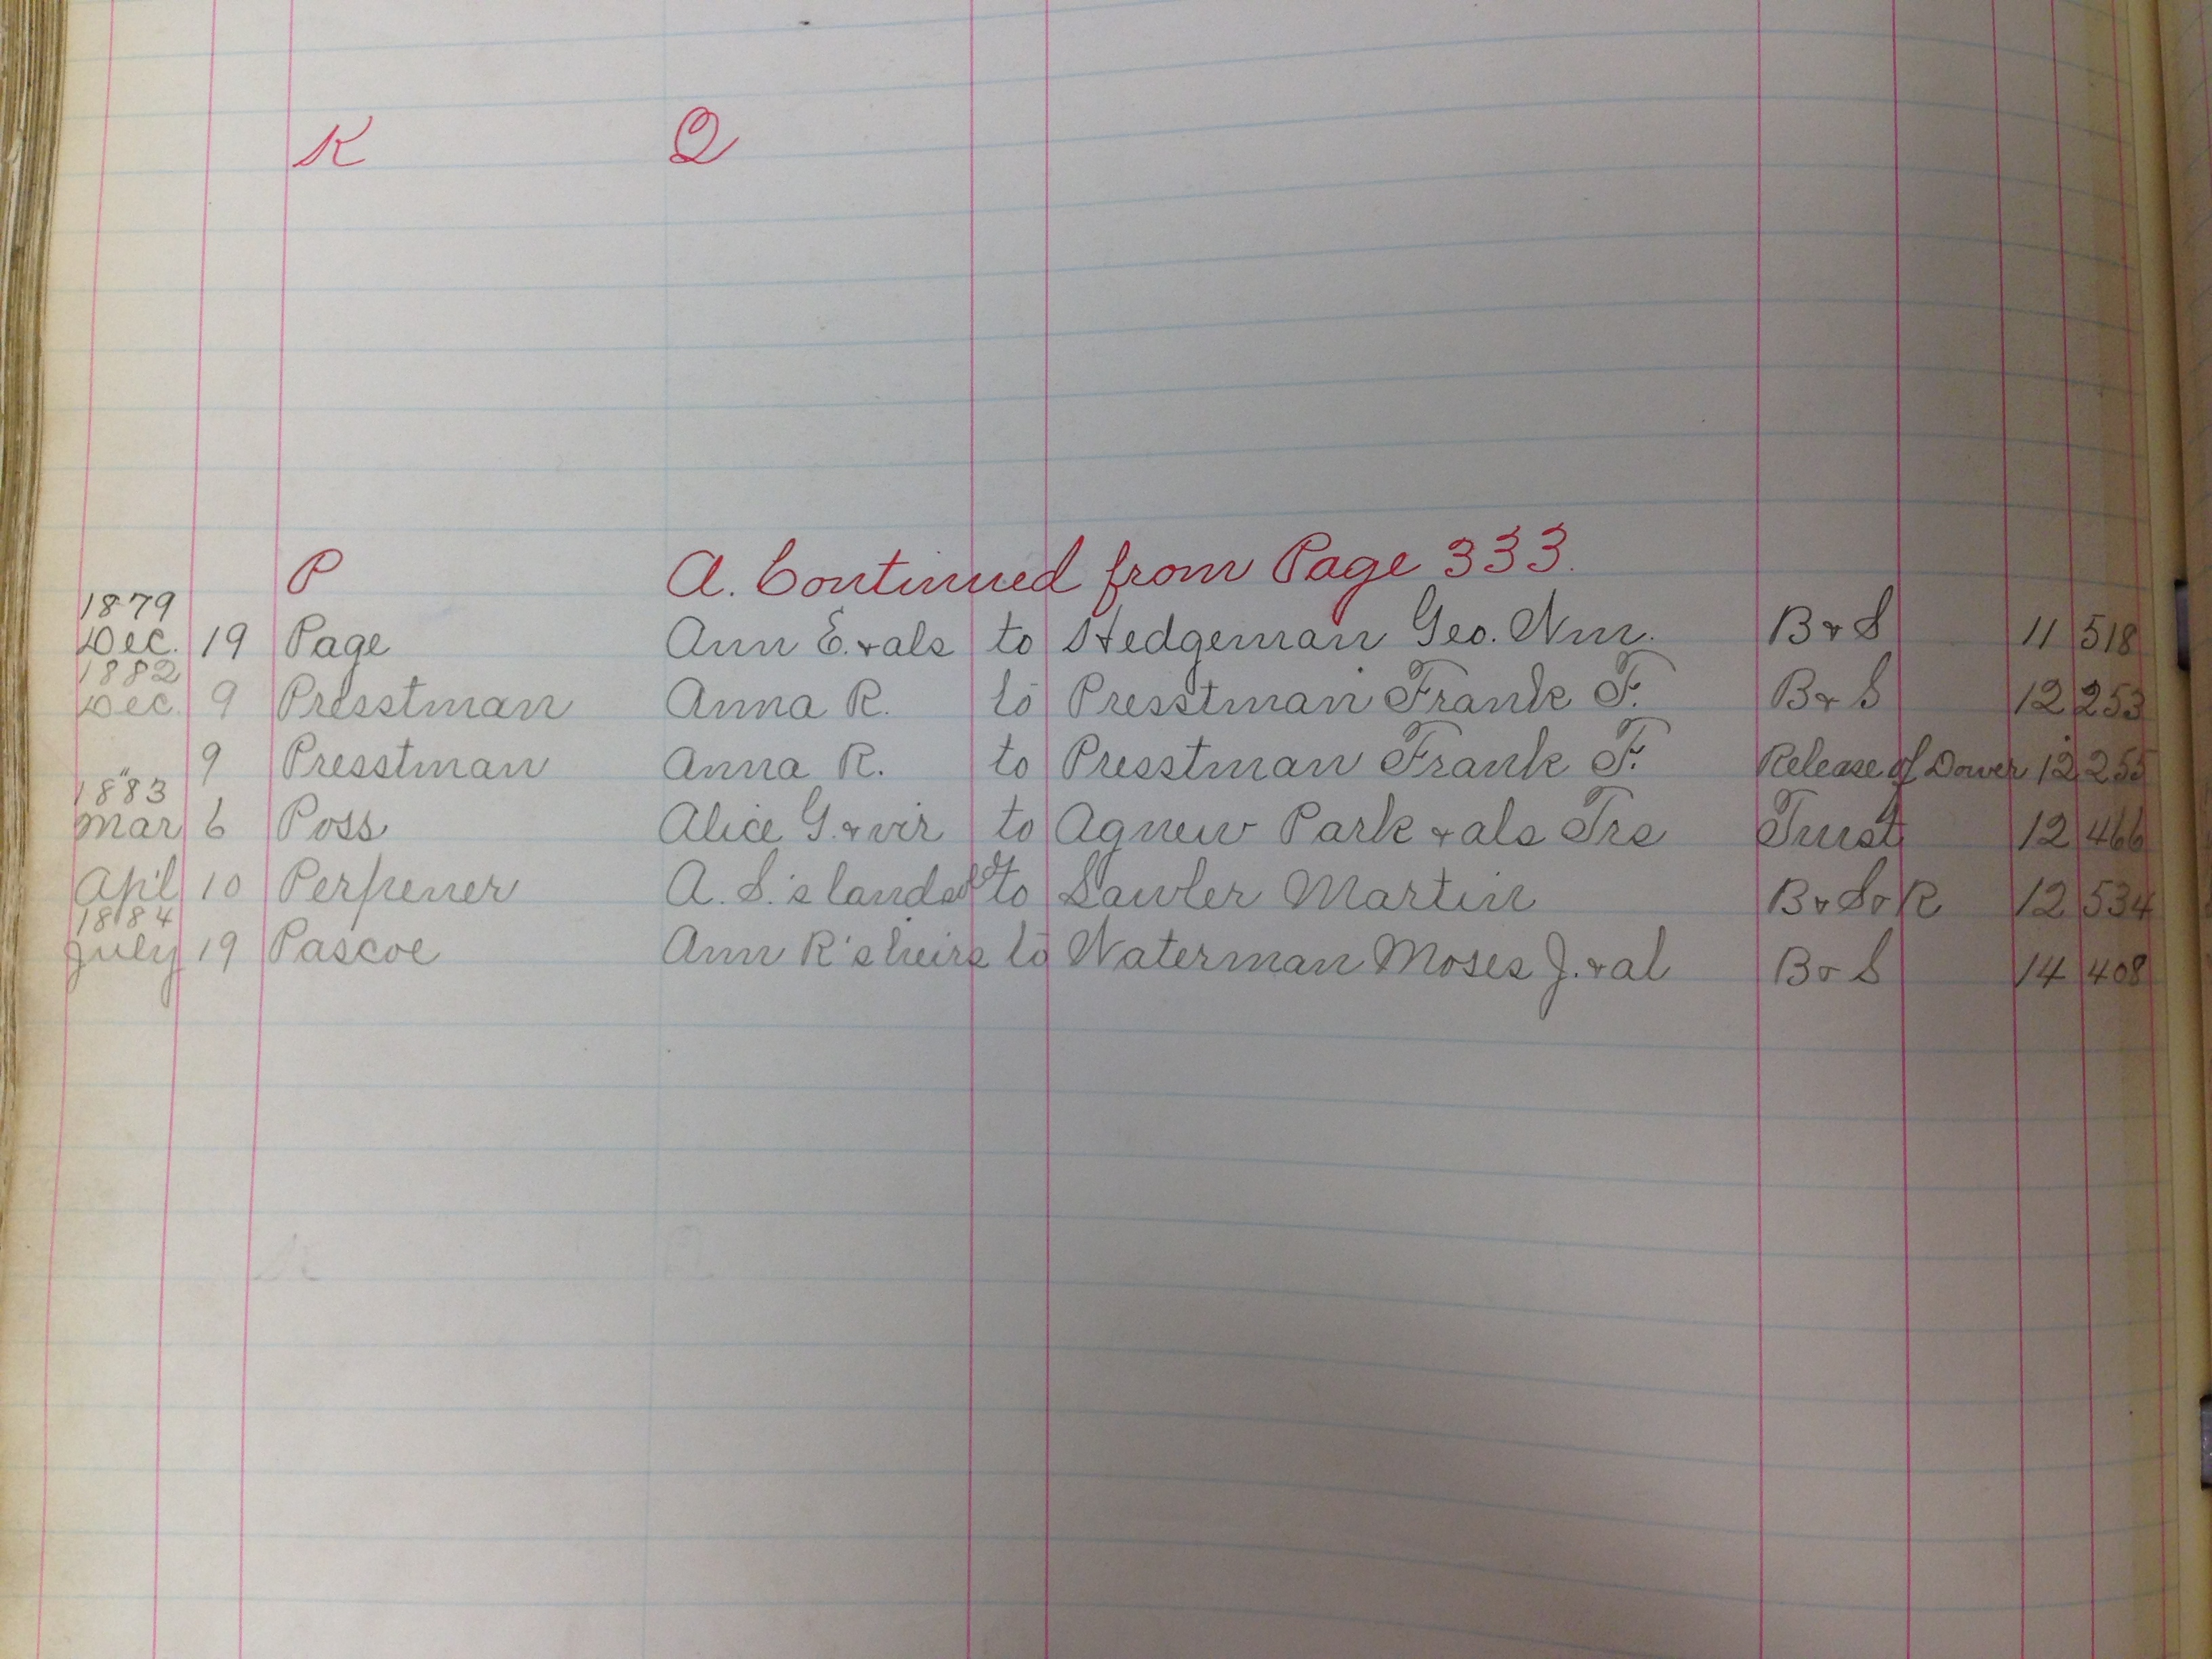 K Q
P A. Continued from Page 333.
1879
Dec. 19 Page Ann E. & als to Hedgeman Geo. Wm. B & S 11 518
1882
Dec. 9 Presstman Anna R. to Presstman Frank F. B & S 12 253
" 9 Presstman Anna R. to Presstman Frank F. Release of Dower 12 255
1883
Mar 6 Poss Alice G. & vir to Agnew Park & als Trs Trust 12 466
Apl 10 Perpener A. S.'s land to Lawler Martin B & S & R 12 534
1884
July 19 Pascoe Ann R's heirs to Waterman Moses J. & al B & S 14 408